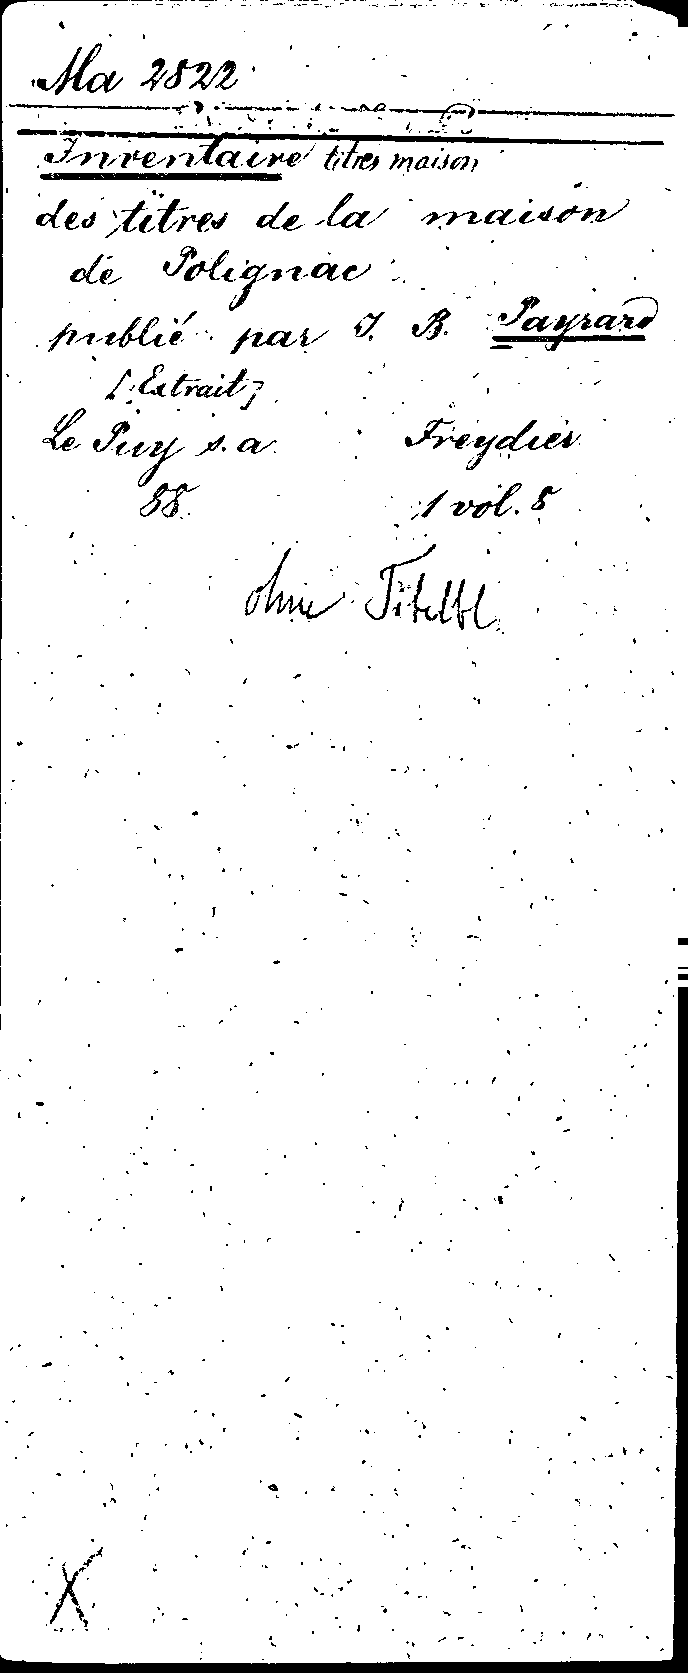 Ma 2822
Inventaire titres maison
des titres de la maison
de Polignac
publié par J. B. Payrard
[Extrait]
Le Puy s. a. Freydier
88. 1 vol. 8
ohne Titelbl.
X